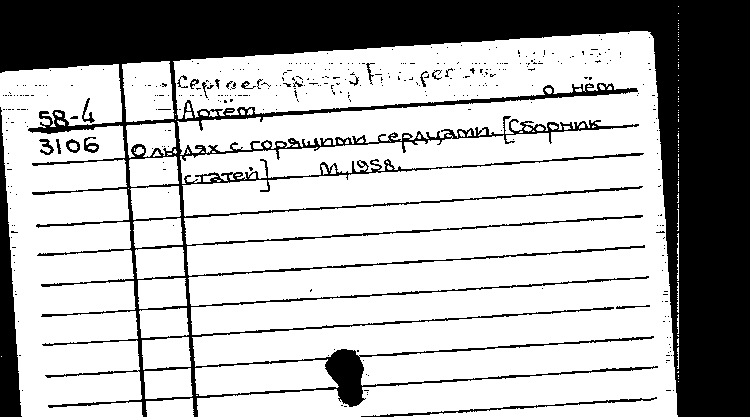 Сергеев
58-4 Артём, о нём
3106 О людях с горящими сердцами. [Сборник
статей] М., 1958.